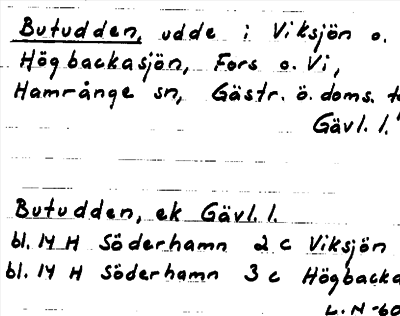 Butudden, udde i Viksjön o.
Högbackasjön, Fors o. Vi,
Hamrånge sn, Gästr. ö. doms.
Gävl. l.
Butudden, ek Gävl. l.
bl. 14 H Söderhamn 2 c Viksjön
bl. 14 H Söderhamn 3 c Högbacka
L.N -60